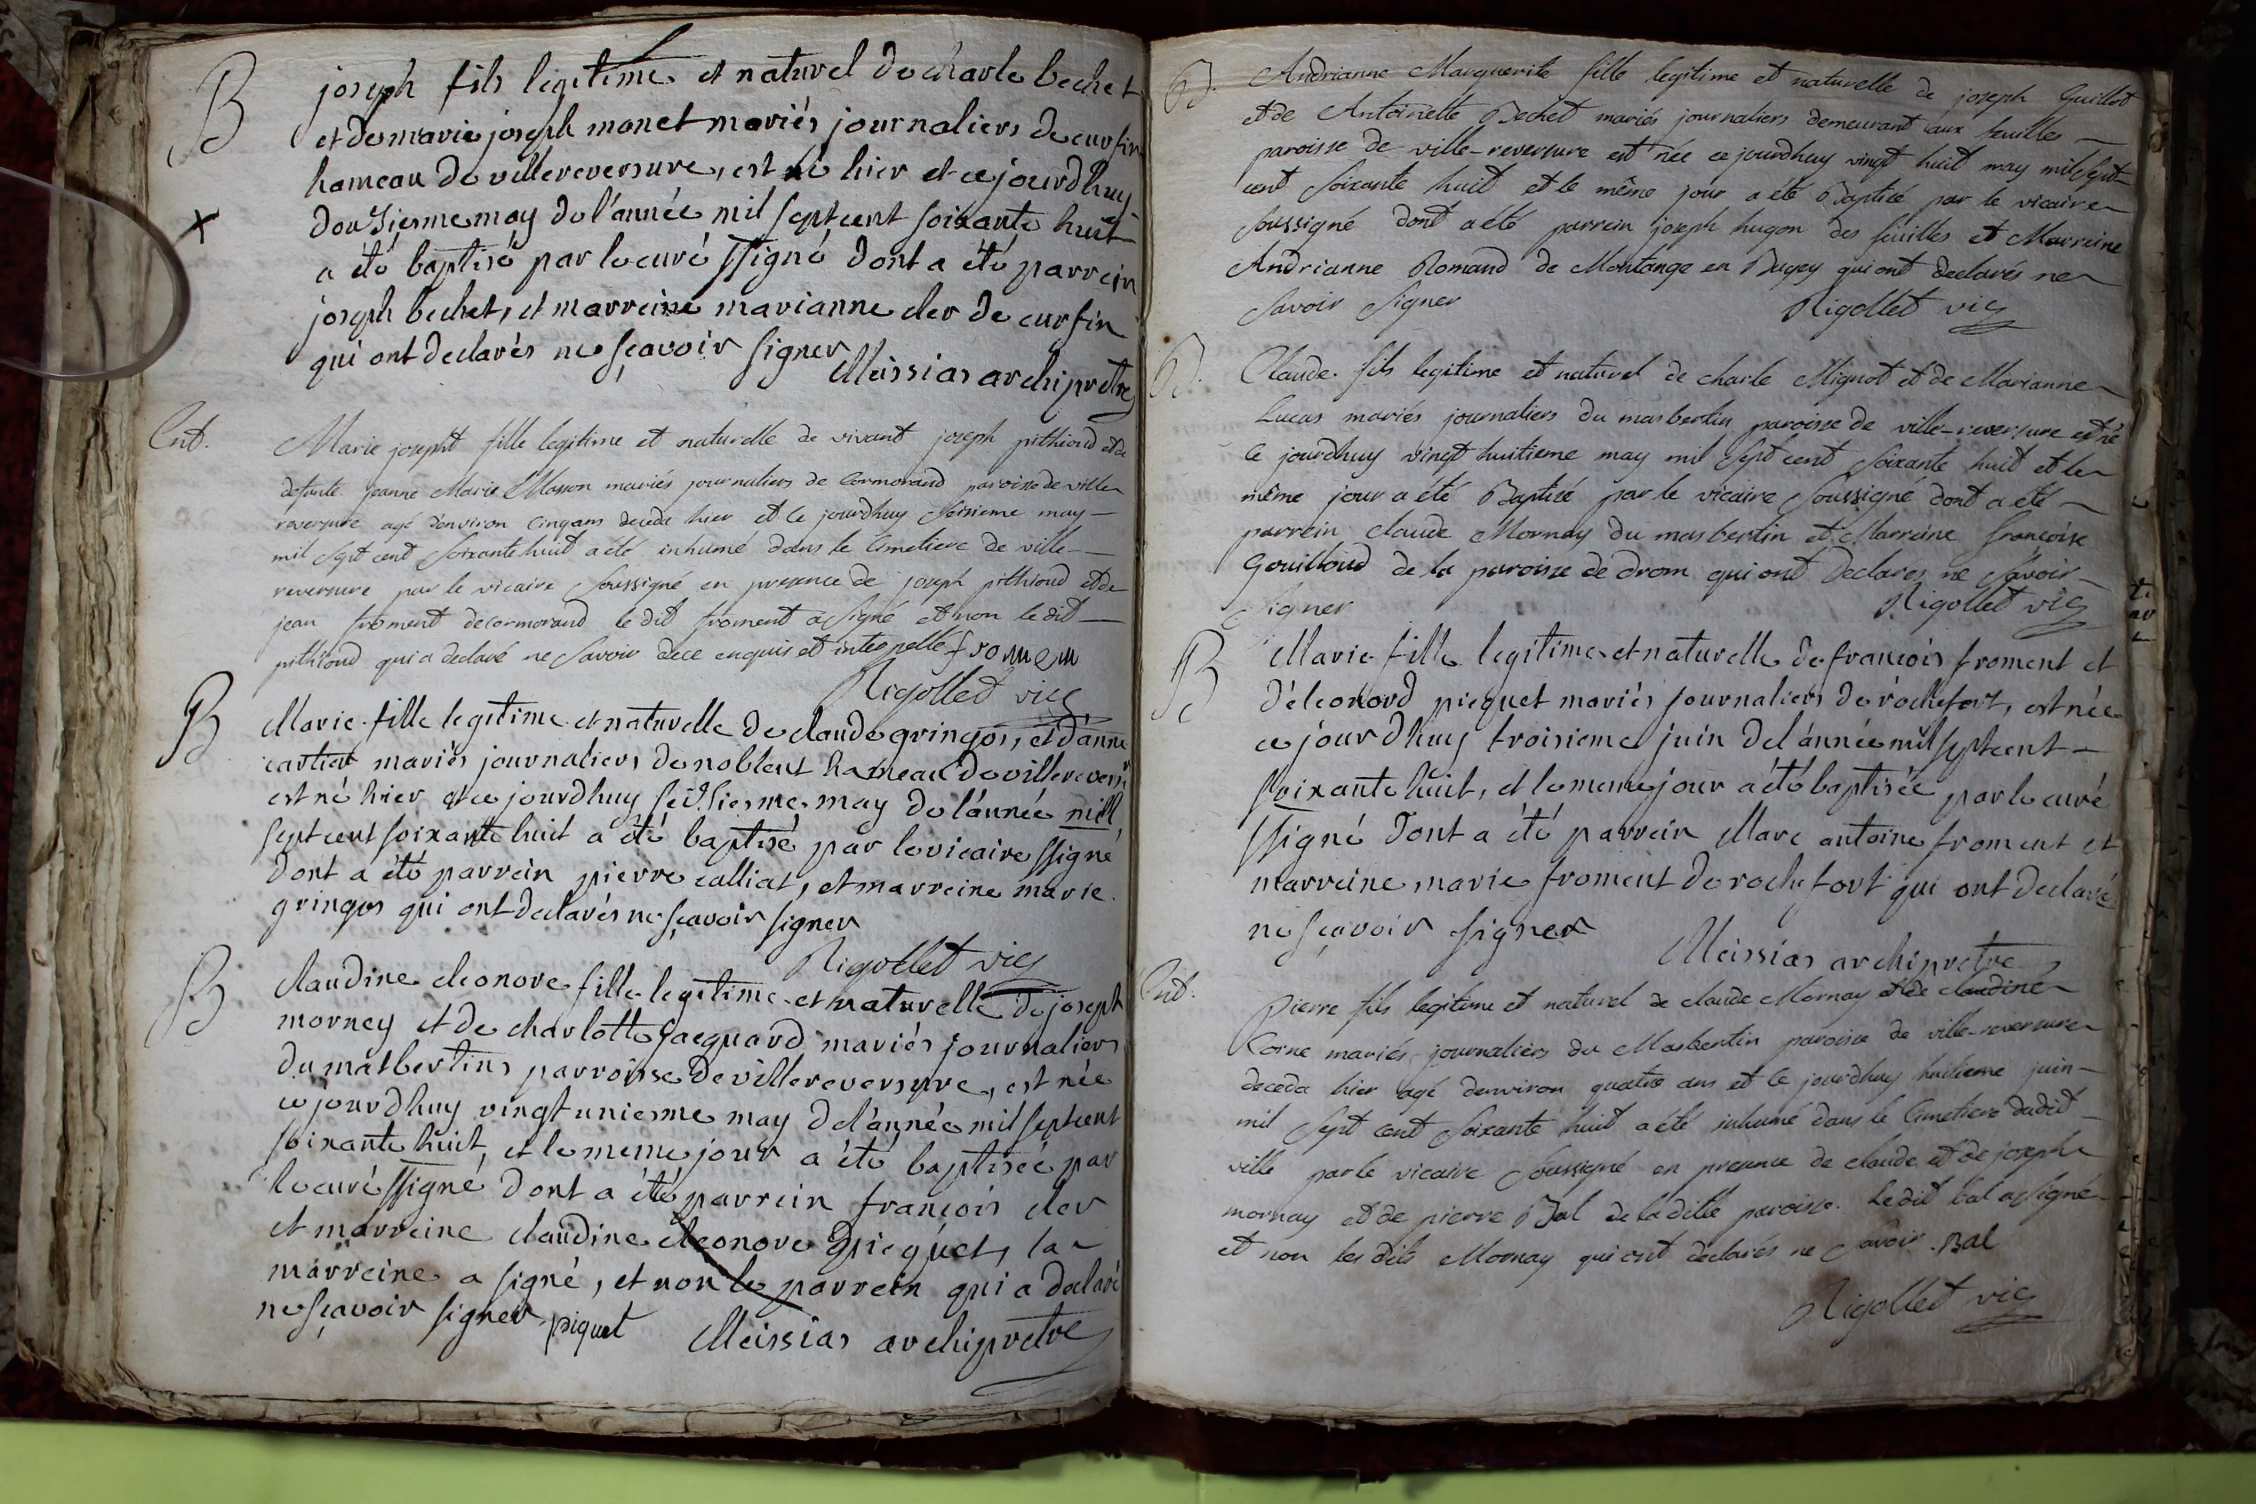 B
joseph fils legitime et naturel de charle bechet
et de marie joseph monet mariés journaliers de curfin
hameau de villereversure, est né hier et ce jourdhuy
douziesme may de l'année mil sept cent soixante huit
a été baptisé par le curé ssigné dont a été parrein
joseph bechet, et marreine marianne cler de curfin
qui ont declarés ne sçavoir signer
Meissias archipretre
x
Ent.
Marie josepht fille legitime et naturelle de vivant joseph pithioud et de
defunte jeanne Marie Masson mariés journaliers de Cormorand paroisse de ville
reversure agé d'environ cinq ans deceda hier et ce jourdhuy may
mil sept cent soixante huit a été inhumé dans le Cimetiere de ville
reversure par le vicaire soussigné en presence de joseph pithioud et de
jean froment de cormorand le dit froment a signé et non le dit
pithioud qui a declaré ne savoir dece enquis et interpellé fromem
Rigollet vic
B
Marie fille legitime et naturelle de claude gringos, et d'anne
cartiat mariés journaliers de noblent hameau de villerevers
est né hier et ce jourdhuy seiziesme may de l'année mill
sept cent soixante huit a été baptisé par le vicaire ssigné
dont a été parrein pierre calliat, et marreine marie
gringos qui ont declarés ne sçavoir signer
Rigollet vic
B
Claudine eleonore fille legitime et naturelle de joseph
morney et de charlotte jacquard mariés journaliers
du masbertins parroisse de villereversure, est née
ce jourdhuy vingt uniesme may de l'année mil sept cent
soixante huit, et le meme jour a été baptisée par
le curé ssigné dont a été parrein françois cler
et marreine claudine eleonore picquet, la
marreine a signé, et non le parrein qui a declaré
ne sçavoir signer piquet Meissias archipretre
B.
Andrianne Marguerite fille legitime et naturelle de joseph Guillot
et de Antoinette Bechet mariés journaliers demeurant aux feuilles
paroisse de ville-reversure est née ce jourdhuy vingt huit may mil sept
cent soixante huit et le même jour a été Baptisé par le vicaire
soussigné dont a été parrein joseph hugon des feuilles et Marreine
Andrianne Romand de Montange en Bugey qui ont declarés ne
savoir signer Rigollet vic
B.
Claude fils legitime et naturel de charle Mignot et de Marianne
Lucas mariés journaliers du masbertin paroisse de ville-reversure est né
ce jourdhuy vingt huitieme may mil sept cent soixante huit et le
même jour a été Baptisé par le vicaire soussigné dont a été
parrein claude Mornay du masbertin et Marreine françoise
Gouilloud de la paroisse de drom qui ont declarés ne savoir
signer Rigollet vic
B
Marie fille legitime et naturelle de françois froment et
d'éleonord picquet mariés journaliers de rochefort, est née
ce jourdhuy troisieme juin del'année mil sept cent
soixante huit, et le meme jour a été baptisée par le curé
ssigné dont a été parrein Marc antoine froment et
marreine marie froment de rochefort qui ont declaré
ne sçavoir signer
Meissias archipretre
Ent.
Pierre fils legitime et naturel de claude Mornay et de claudine
Corne mariés journaliers du Masbertin paroisse de ville-reversure
deceda hier agé denviron quatre ans et ce jourdhuy huitieme juin
mil sept cent soixante huit a été inhumé dans le Cimetiere dudit
ville par le vicaire soussigné en presence de claude et de joseph
mornay et de pierre Bal de ladite paroisse. Ledit bal a signé
et non les dits Mornay qui ont declarés ne savoir Bal
Rigollet vic